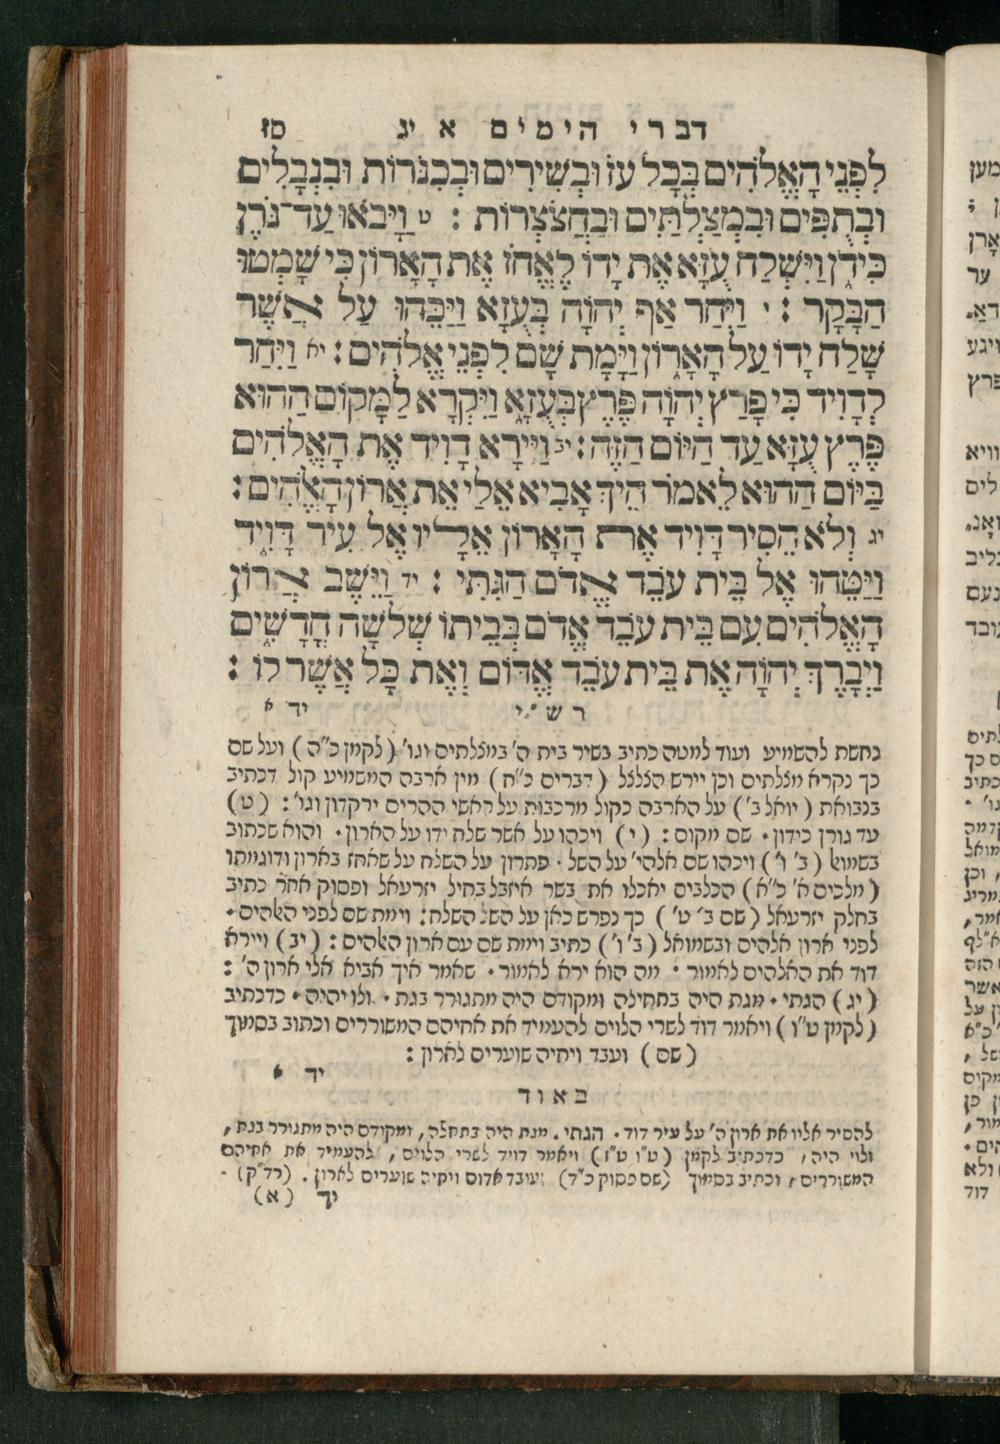 דברי הימים א יג סז
לִפְנֵי הָאֱלֹהִים בְּכָל עֹז וּבְשִׁירִים וּבְכִנֹּרוֹת וּבִנְבָלִים
וּבְתֻפִּים וּבִמְצִלְתַּיִם וּבַחֲצֹצְרוֹת : ט וַיָּבֹאוּ עַד־גֹּרֶן
כִּידֹן וַיִּשְׁלַח עֻזָּא אֶת יָדוֹ לֶאֱחֹז אֶת הָאָרוֹן כִּי שָׁמְטוּ
הַבָּקָר : י וַיִּחַר אַף יְהוָֹה בְּעֻזָּא וַיַּכֵּהוּ עַל אֲשֶׁר
שָׁלַח יָדוֹ עַל הָאָרוֹן וַיָּמָת שָׁם לִפְנֵי אֱלֹהִים : יא וַיִּחַר
לְדָוִיד כִּי פָרַץ יְהוָֹה פֶּרֶץ בְּעֻזָּא וַיִּקְרָא לַמָּקוֹם הַהוּא
פֶּרֶץ עֻזָּא עַד הַיּוֹם הַזֶּה : יב וַיִּירָא דָוִיד אֶת הָאֱלֹהִים
בַּיּוֹם הַהוּא לֵאמֹר הֵיךְ אָבִיא אֵלַי אֵת אֲרוֹן הָאֱלֹהִים :
יג וְלֹא הֵסִיר דָּוִיד אֶת הָאָרוֹן אֵלָיו אֶל עִיר דָּוִיד
וַיַּטֵּהוּ אֶל בֵּית עֹבֵד אֱדֹם הַגִּתִּי : יד וַיֵּשֶׁב אֲרוֹן
הָאֱלֹהִים עִם בֵּית עֹבֵד אֱדֹם בְּבֵיתוֹ שְׁלֹשָׁה חֳדָשִׁים
וַיְבָרֶךְ יְהוָֹה אֶת בֵּית עֹבֵד אֱדוֹם וְאֶת כָּל אֲשֶׁר לוֹ :
רש״י יד א
נחשת להשמיע ועוד למטה כתיב בשיר בית ה׳ במצלתים וגו׳ ( לקמן כ״ה ) ועל שם
כך נקרא מצלתים וכן יירש הצלצל ( דברים כ״ח ) מין ארבה המשמיע קול דכתיב
בנבואת ( יואל ב׳ ) על הארבה כקול מרכבות על ראשי ההרים ירקדון וגו׳ : ( ט )
עד גורן כידון • שם מקום : ( י ) ויכהו על אשר שלח ידו על הארון • והוא שכתוב
בשמואל ( ב׳ ו׳ ) ויכהו שם אלהי׳ על השל • פתרון על השלח על שאחז בארון ודוגמתו
( מלכים א׳ כ״א ) הכלבים יאכלו את בשר איזבל בחיל יזרעאל ופסוק אחר כתיב
בחלק יזרעאל ( שם ב׳ ט׳ ) כך נפרש כאן על השל השלח : וימת שם לפני האלהים •
לפני ארון אלהים ובשמואל ( ב׳ ו׳ ) כתיב וימת שם עם ארון האלהים : ( יב ) ויירא
דוד את האלהים לאמור • מה הוא ירא לאמור • שאמר איך אביא אלי ארון ה׳ :
( יג ) הגתי • מגת היה בתחילה ומקודם היה מתגורר בגת • ולוי היה • כדכתיב
( לקמן ט״ו ) ויאמר דוד לשרי הלוים להעמיד את אחיהם המשוררים וכתוב בסמוך
( שם ) ועבד ויחיה שוערים לארון :
יד א
באור
להסיר אליו את ארון ה׳ על עיר דוד • הגתי . מגת היה בתחלה , ומקודם היה מתגורר בגת ,
ולוי היה , כדכתיב לקמן ( ט״ו ט״ז ) ויאמר דויד לשרי הלוים , להעמיד את אחיהם
המשוררים , וכתיב בסמוך ( שם פסוק כ״ד ) ועובד אדום ויחיה שוערים לארון . ( רד״ק ) •
יד ( א )